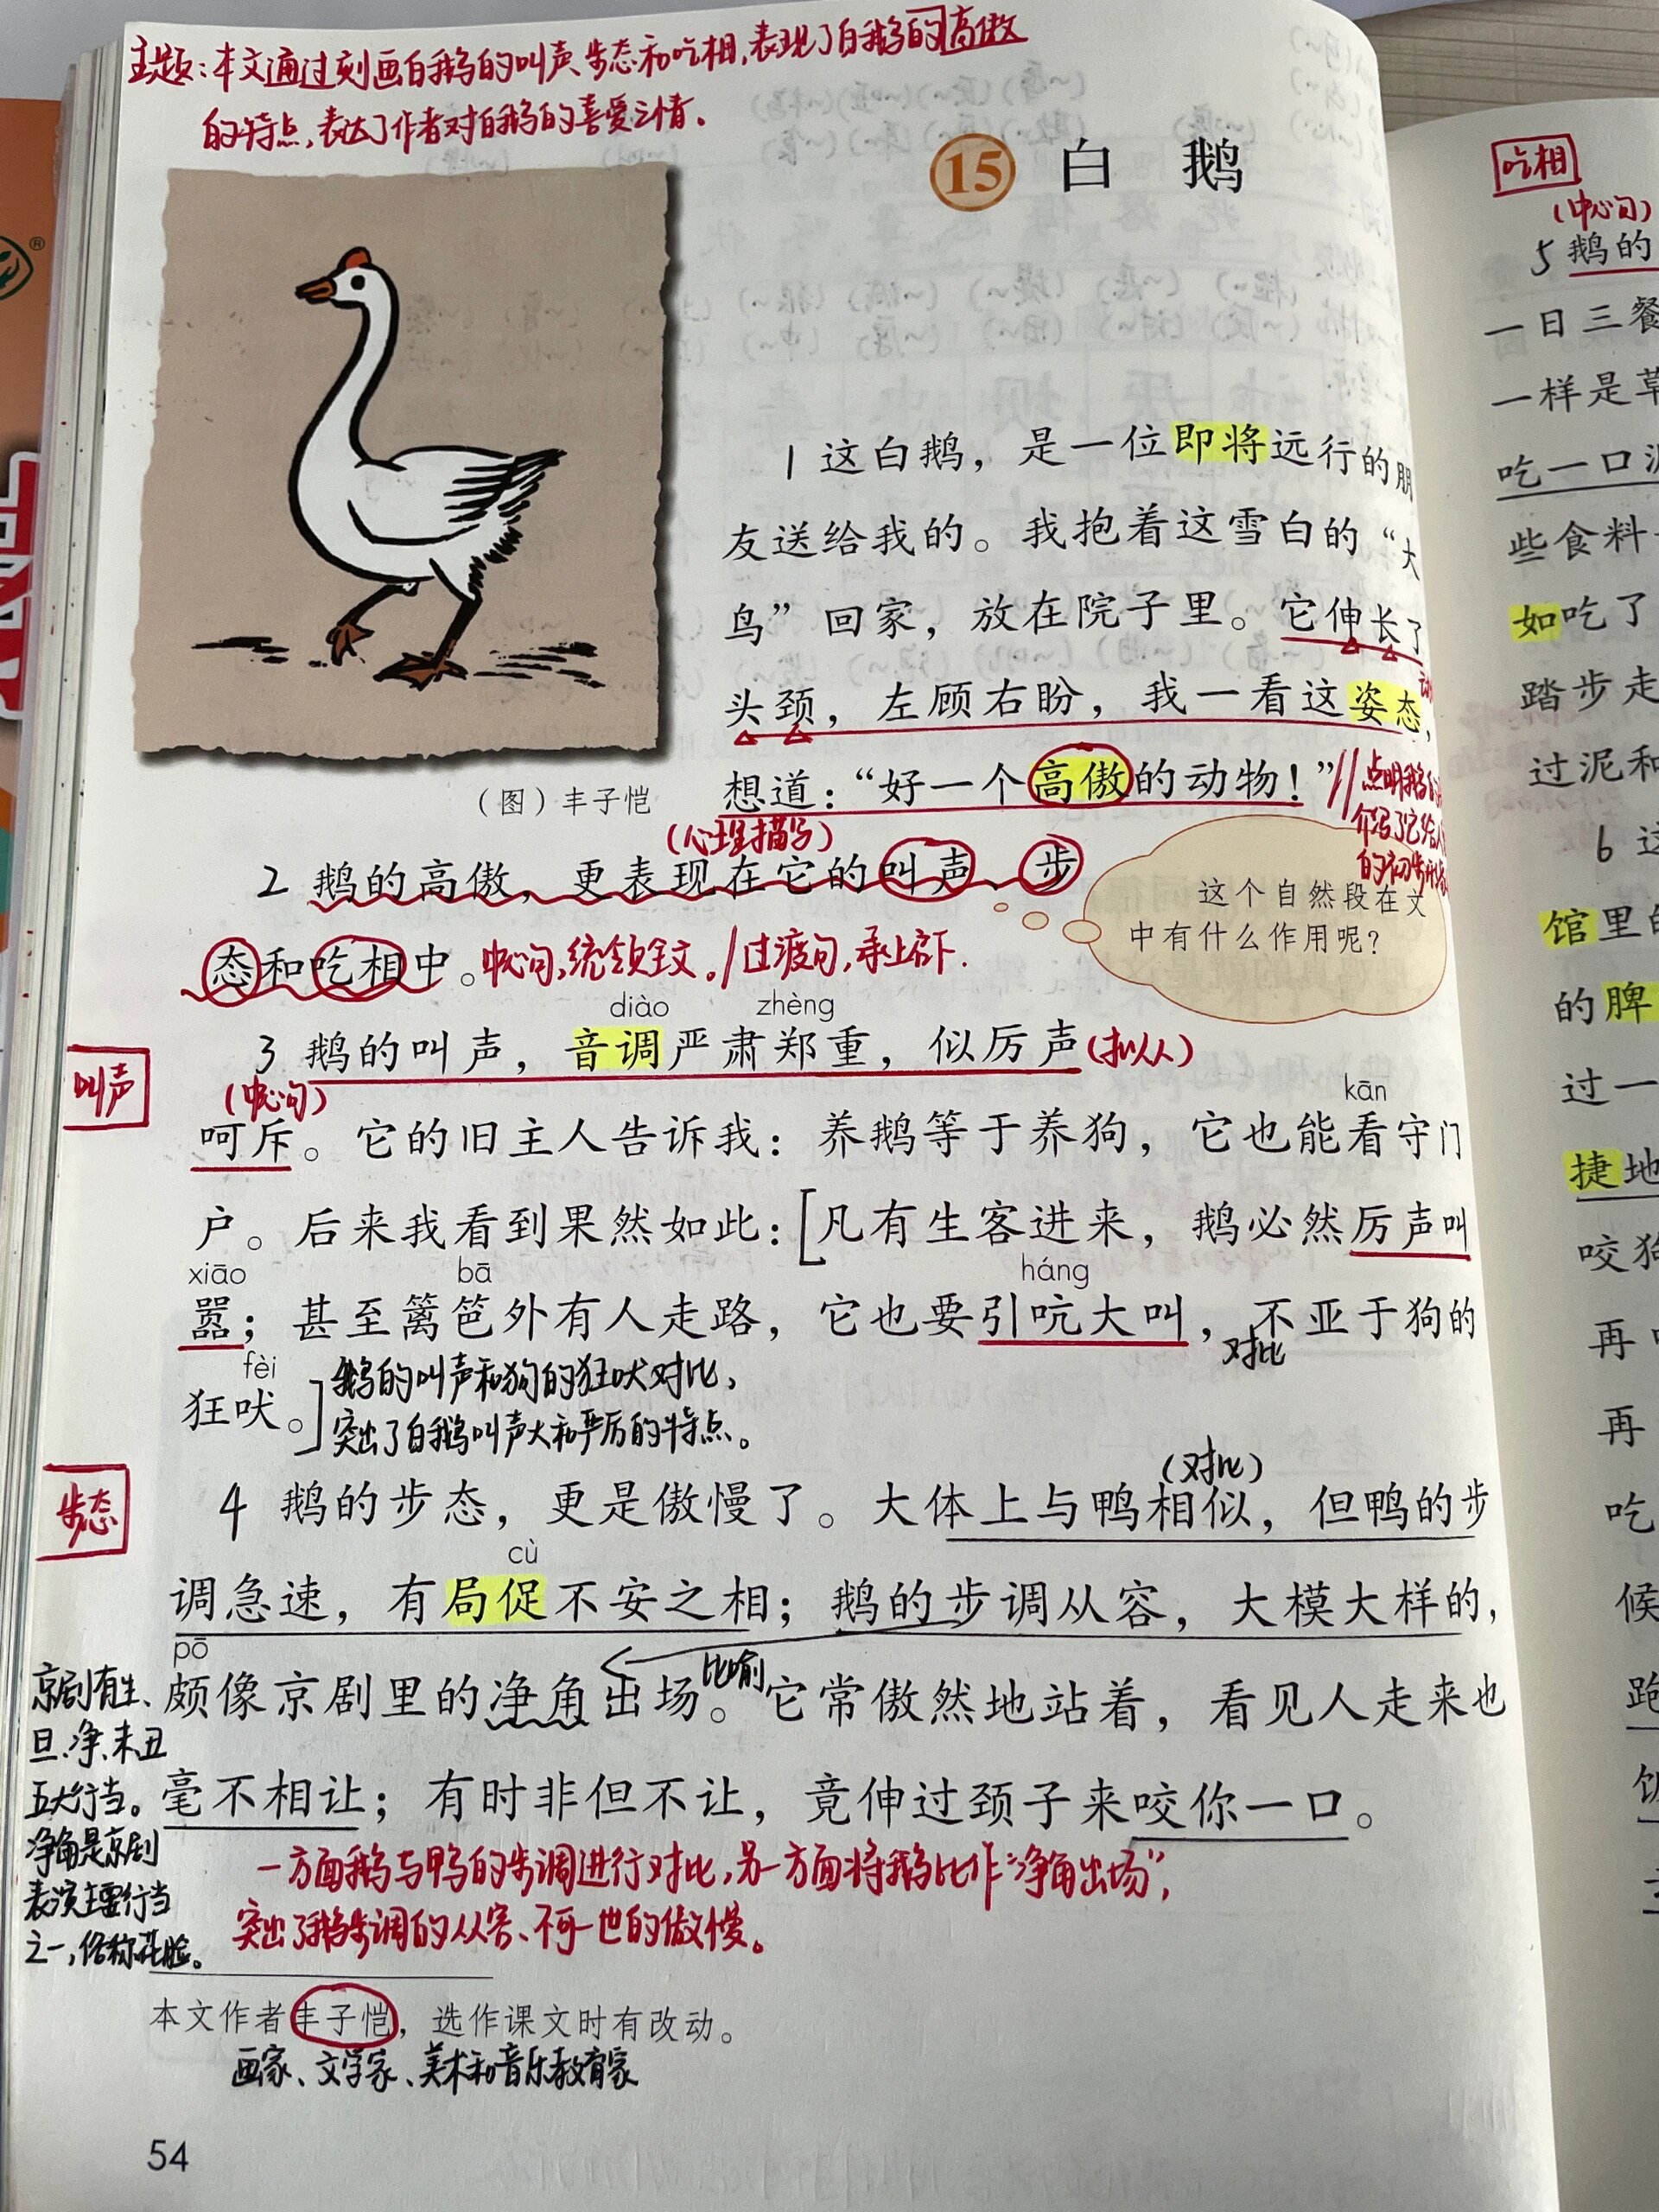 主题：本文通过刻画白鹅的叫声、步态和吃相，表现了白鹅的高傲
的特点，表达了作者对白鹅的喜爱之情。
15 白鹅
（图）丰子恺
1 这白鹅，是一位即将远行的朋
友送给我的。我抱着这雪白的“大
鸟”回家，放在院子里。它伸长了
头颈，左顾右盼，我一看这姿态，
想道：“好一个高傲的动物！”
（心理描写）
2 鹅的高傲，更表现在它的叫声、步
态和吃相中。中心句，统领全文。/过渡句，承上启下.
这个自然段在文
中有什么作用呢？
diào zhèng
叫声
3 鹅的叫声，音调严肃郑重，似厉声（拟人）
（中心句）
kān
呵斥。它的旧主人告诉我：养鹅等于养狗，它也能看守门
户。后来我看到果然如此：[凡有生客进来，鹅必然厉声叫
xiāo bā háng
嚣；甚至篱笆外有人走路，它也要引吭大叫，不亚于狗的
对比
fèi
狂吠。]鹅的叫声和狗的狂吠对比，
突出了白鹅叫声大和严厉的特点。
（对比）
步态
4 鹅的步态，更是傲慢了。大体上与鸭相似，但鸭的步
cù
调急速，有局促不安之相；鹅的步调从容，大模大样的，
pō
颇像京剧里的净角出场。它常傲然地站着，看见人走来也
比喻
毫不相让；有时非但不让，竟伸过颈子来咬你一口。
京剧有生、
旦、净、末、丑
五大行当。
净角是京剧
表演主要行当
之一，俗称花脸。
一方面鹅与鸭的步调进行对比，另一方面将鹅比作“净角出场”，
突出了鹅步调的从容、不可一世的傲慢。
本文作者丰子恺，选作课文时有改动。
画家、文学家、美术和音乐教育家
54
吃相
（中心句）
5 鹅的
一日三餐
一样是草
吃一口泥
些食料
如吃了
踏步走
过泥和
6 这
馆里的
的脾
过一
捷地
咬狗
再
再
吃
候
跑
饭